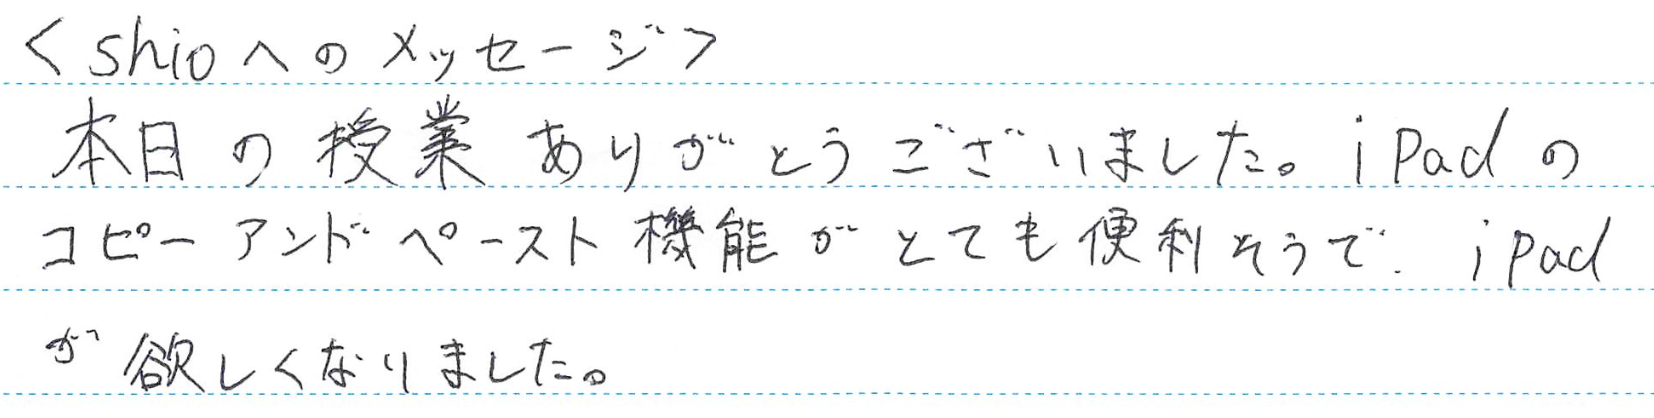 <shioへのメッセージ>
本日の授業ありがとうございました。iPadの
コピーアンドペースト機能がとても便利そうで、ipad
が欲しくなりました。